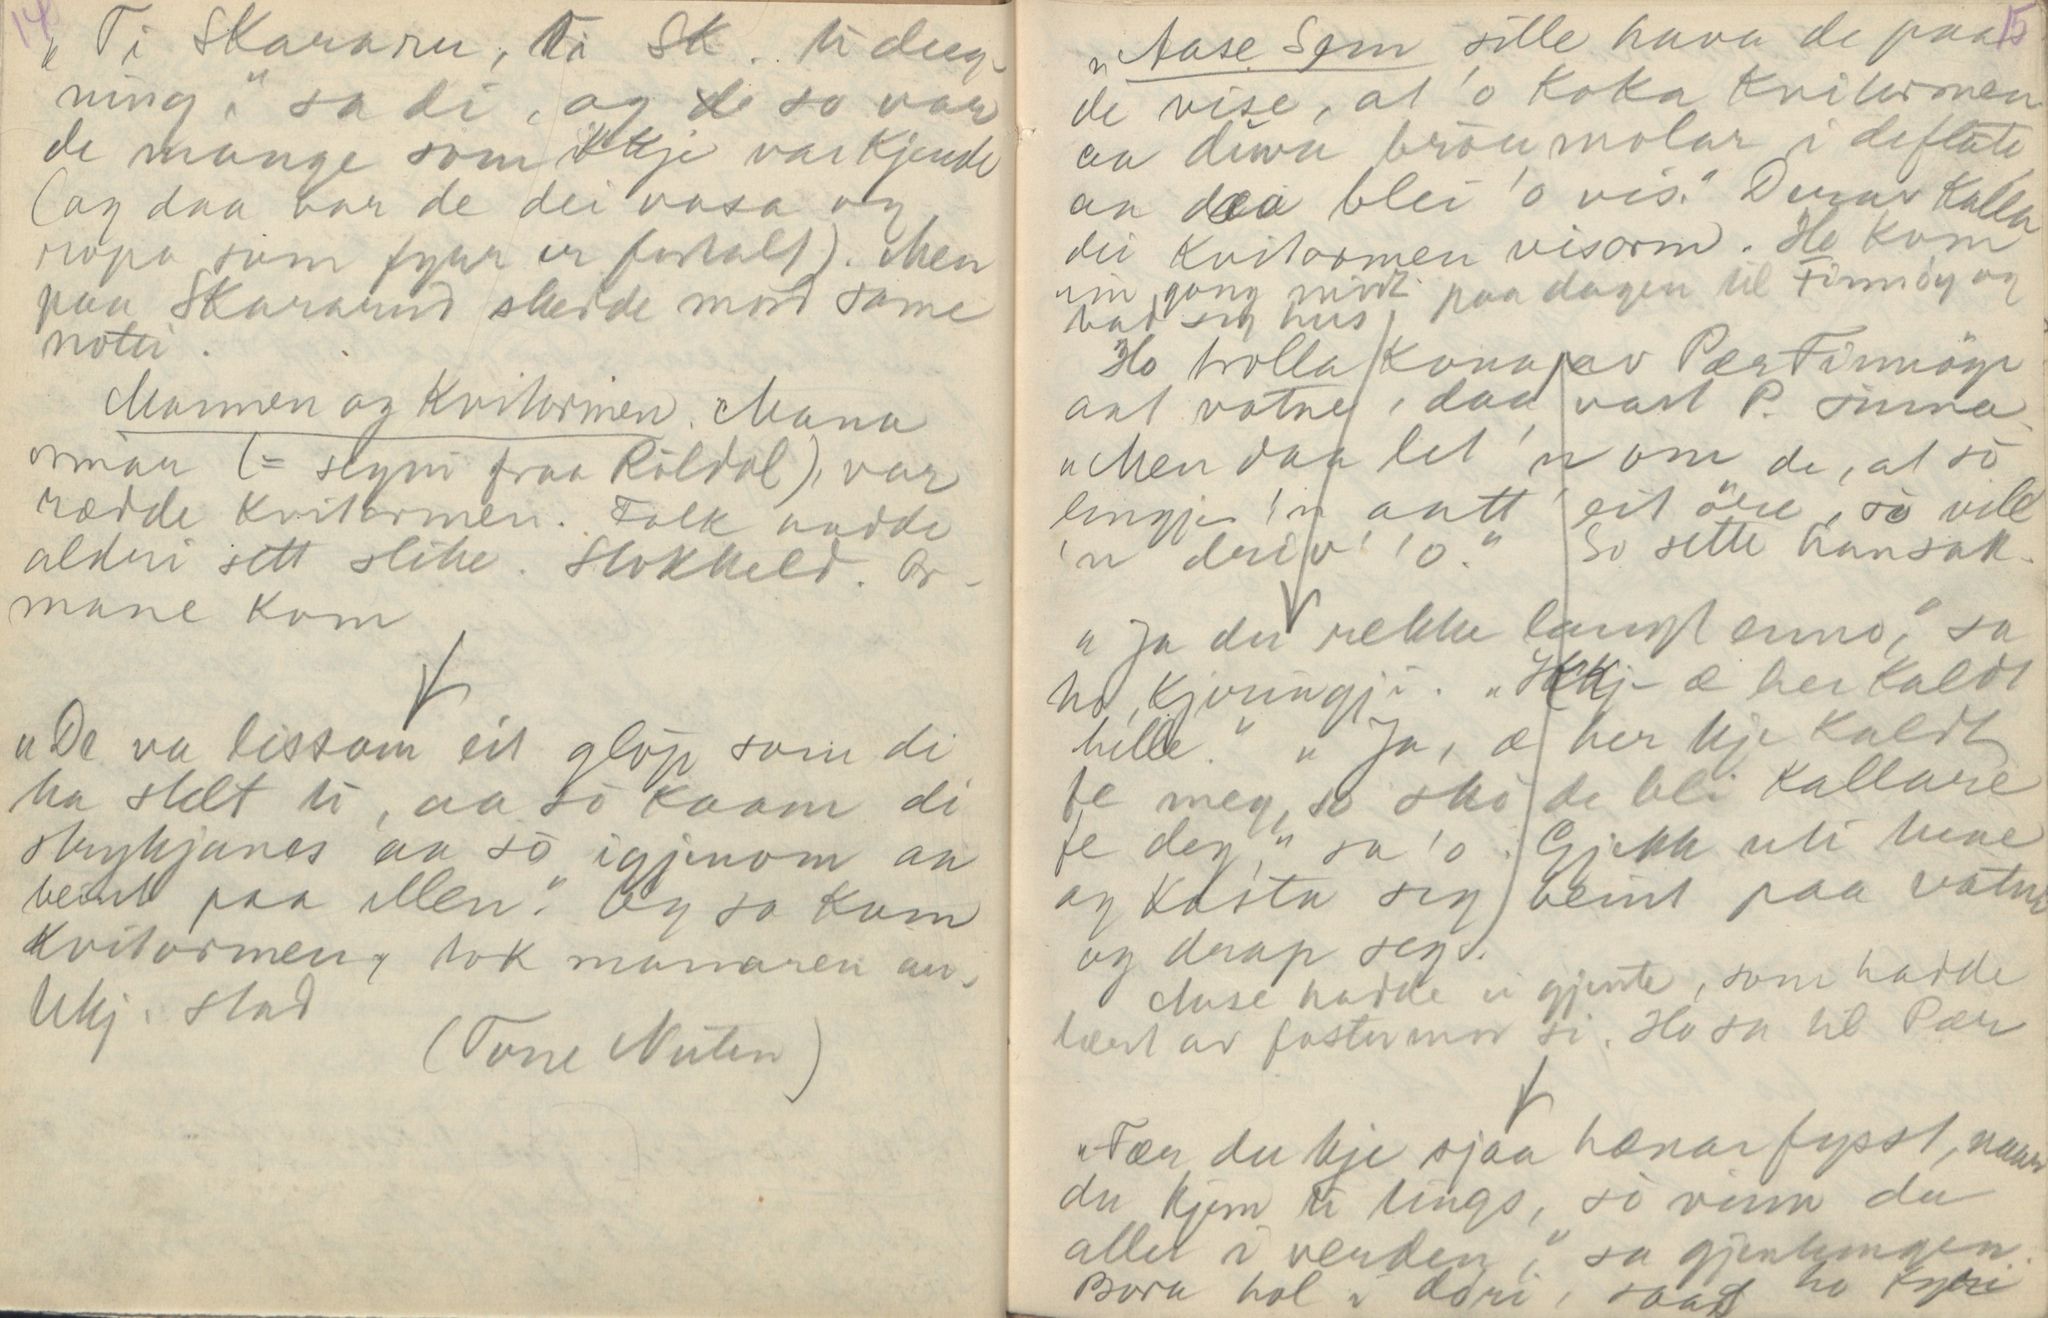 14
"Ti Skararu, ti Sk. ti dug-
ning," sa di, og so var
de mange som ikkje var kjende
(og daa var de dei vasa og
ropa som fyrr er fortalt). Men
paa Skararud skedde mord same
notti.
Mannen og Kvitormen. Mana
ormaa (= segni fraa Röldal), var
rædde kvitormen. Folk hadde
alderi sett slike. Stokkeld. Or-
mane kom
"De va lissom eit glöp som di
ha stelt ti, aa sò kaam di
strykjanes aa sò igjenom aa
beint paa ellen." Og so kom
Kvitormen, tok manaren au,
ikkj. stad
(Tone Nuten)
15
"Aase Sem sille hava de paa
de vise, at 'o koka kvitormen
aa duvu bröumolar i deflòte,
aa daa blei 'o vis." Derav kalla
dei kvitormen visorm. Ho kom
ein gong midt paa dagen til Finnöy og
bad seg hus,
Ho trolla kona av Pær Finnöye
aat vatne, daa vart P. sinna.
"Men daa let 'n om de, at sò
lengje 'n aatt eit öre, sò vill
'n driv' 'o." So sette han sak.
"Ja du rekke langt enno," sa
ho, kjeringji. "Ikkj æ her kaldt
helle." "Ja, æ her kje kaldt
te meg, so skò de bli kallare
te deg," sa 'o. Gjekk uti hene
og kasta seg beint paa vatne
og drap seg.
Aase hadde ei gjente, som hadde
lært av fostermor si. Ho sa til Pær
"Fær du kje sjaa hænar fysst, naar
du kjem ti tings, sò vinn du
aller i verden," sa gjentungen.
Bora hol i döri, saag ho fysst